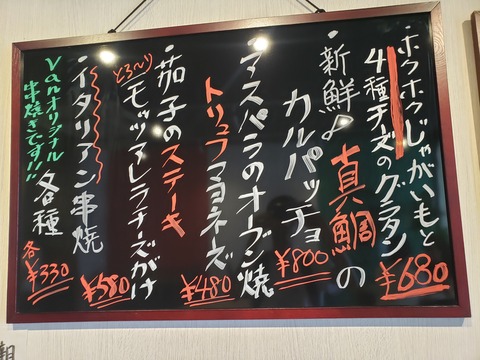 ・ホクホクじゃがいもと
4種チーズのグラタン
¥680
・新鮮♪真鯛の
カルパッチョ
¥800
・アスパラのオーブン焼
トリュフマヨネーズ
¥480
・茄子のステーキ
とろ〜り
モッツァレラチーズがけ
¥580
・イタリアン串焼
各種
各¥330
Vanオリジナル
串焼きです!!